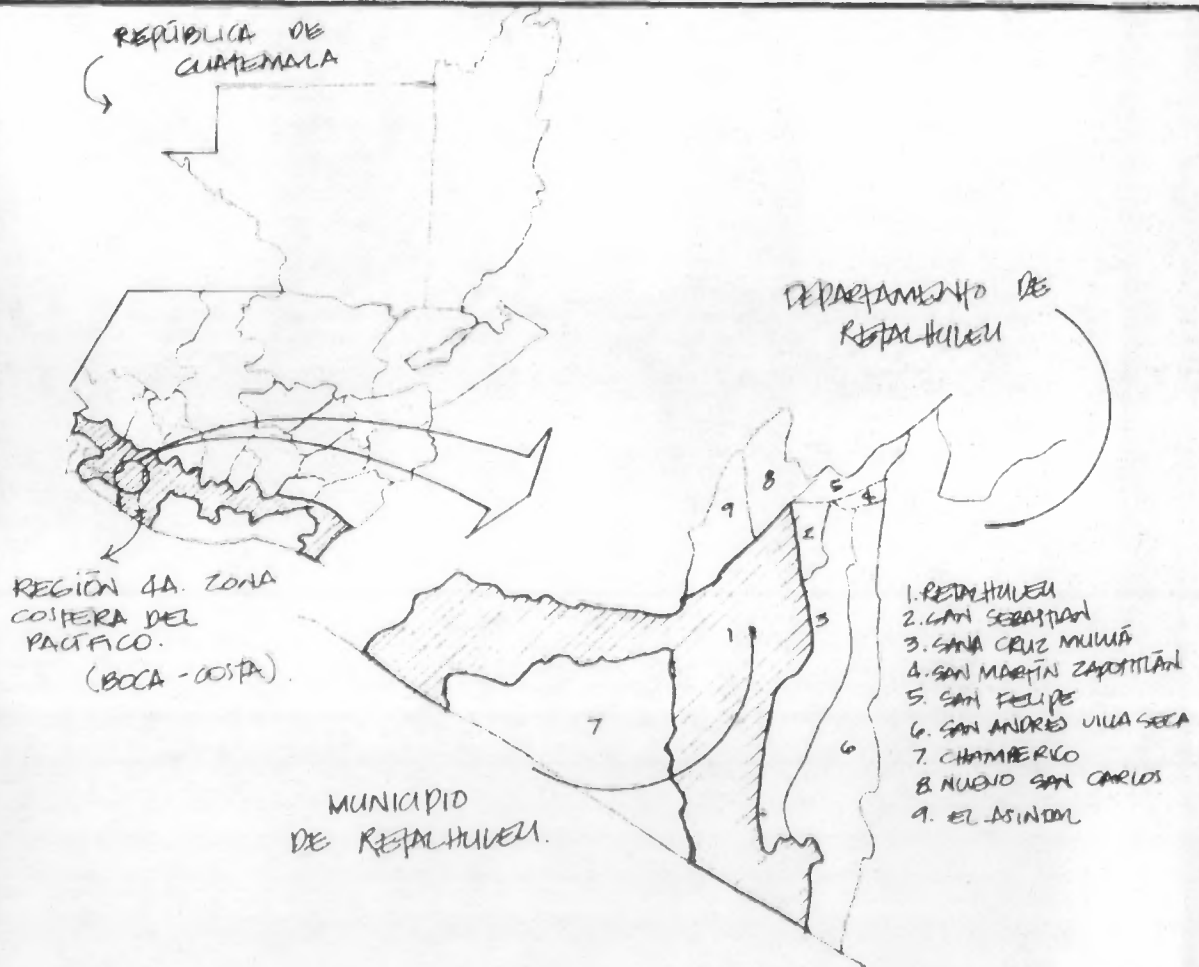 REPÚBLICA DE
GUATEMALA
DEPARTAMENTO DE
RETALHULEU
REGIÓN 4A. ZONA
COSTERA DEL
PACÍFICO.
(BOCA-COSTA).
MUNICIPIO
DE RETALHULEU.
1. RETALHULEU
2. SAN SEBASTIAN
3. SANA CRUZ MULUÁ
4. SAN MARTÍN ZAPOTITLÁN
5. SAN FELIPE
6. SAN ANDRES VILLA SECA
7. CHAMPERICO
8 NUEVO SAN CARLOS
9. EL ASINTAL
8
5
4
9
2
1
3
6
7